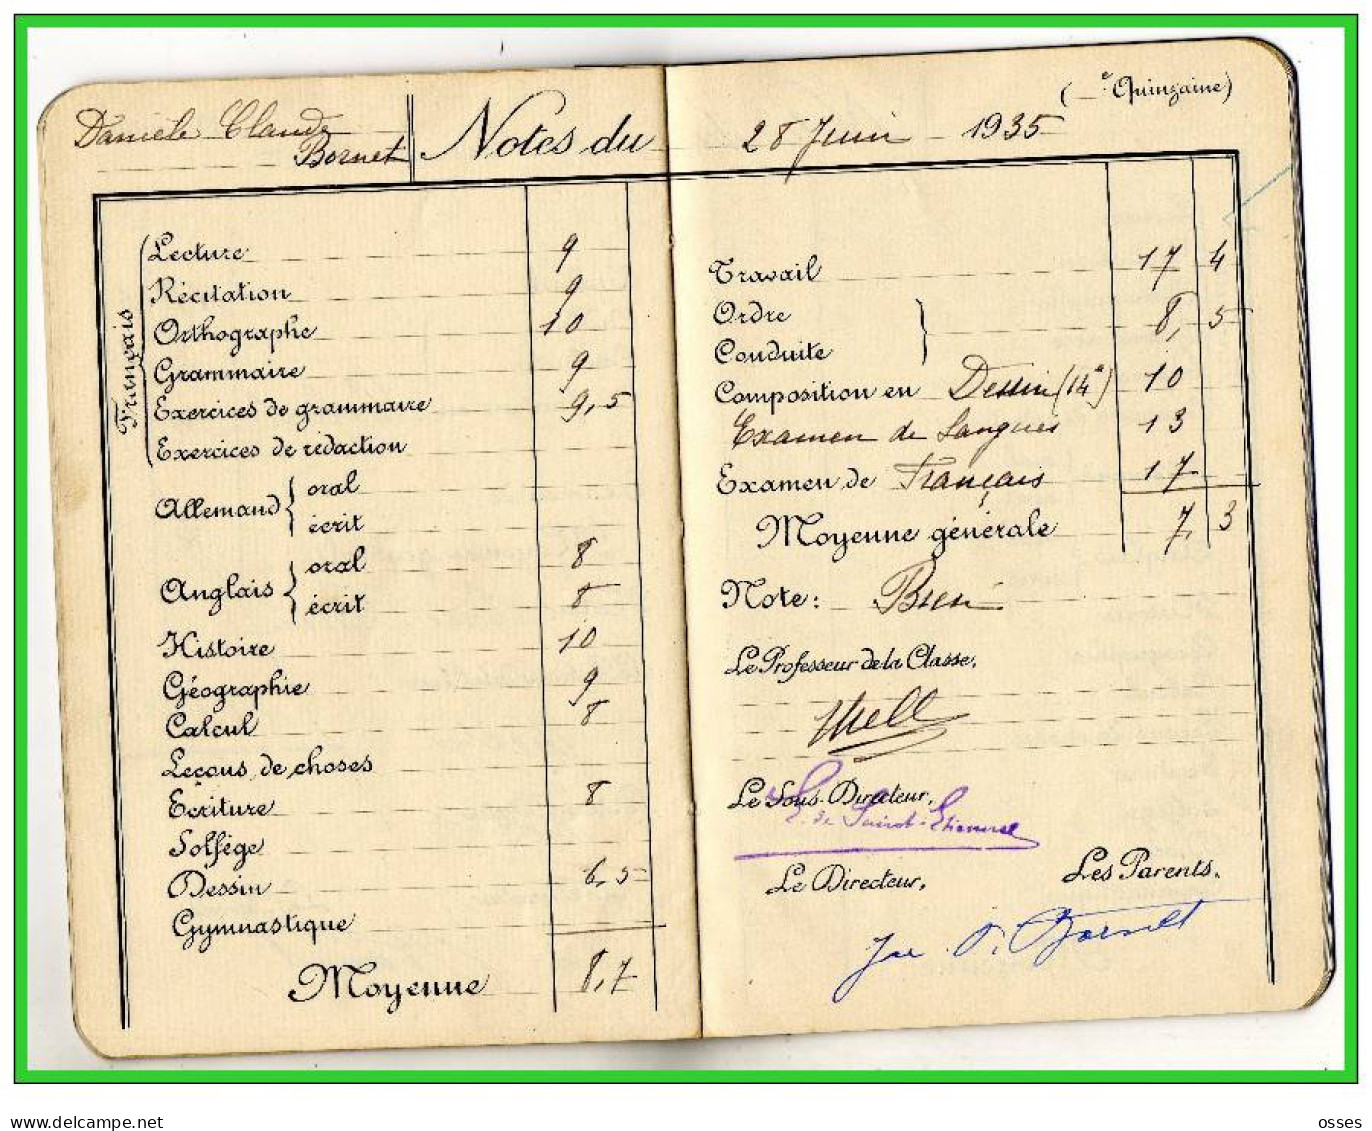 Danièle Claude
Bornet
Notes du 28 Juin 1935
(  e Quinzaine)
Français
Lecture 9
Récitation 9
Orthographe 10
Grammaire 9
Exercices de grammaire 9,5
Exercices de rédaction
Allemand { oral
écrit
Anglais { oral 8
écrit 8
Histoire 10
Géographie 9
Calcul 8
Leçons de choses
Ecriture 8
Solfège
Dessin 6,5
Gymnastique
Moyenne 8,7
Travail 17 4
Ordre
Conduite } 8, 5
Composition en Dessin (14e) 10
Examen de Langues 13
Examen de Français 17
Moyenne générale 7, 3
Note: Bien
Le Professeur de la Classe,
Le Sous-Directeur,
de Saint-Etienne
Le Directeur,
Les Parents,
Bornet
delcampe.net
osses